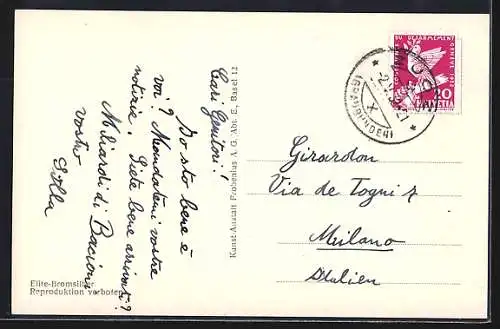 Cari Genitori!
Io sto bene è
voi? Mandatemi vostre
notizie. Siete bene arrivati?
Miliardi di Bacioni
vostro
Elite-Bromsilber
Reproduktion verboten
Kunst-Anstalt Frobenius A. G. Abt. E., Basel 12
(GRAUBÜNDEN)
DU DÉSARMEMENT
GENÈVE 1932
20
HELVETIA
Girardon
Via de Togni 7
Milano
Italien